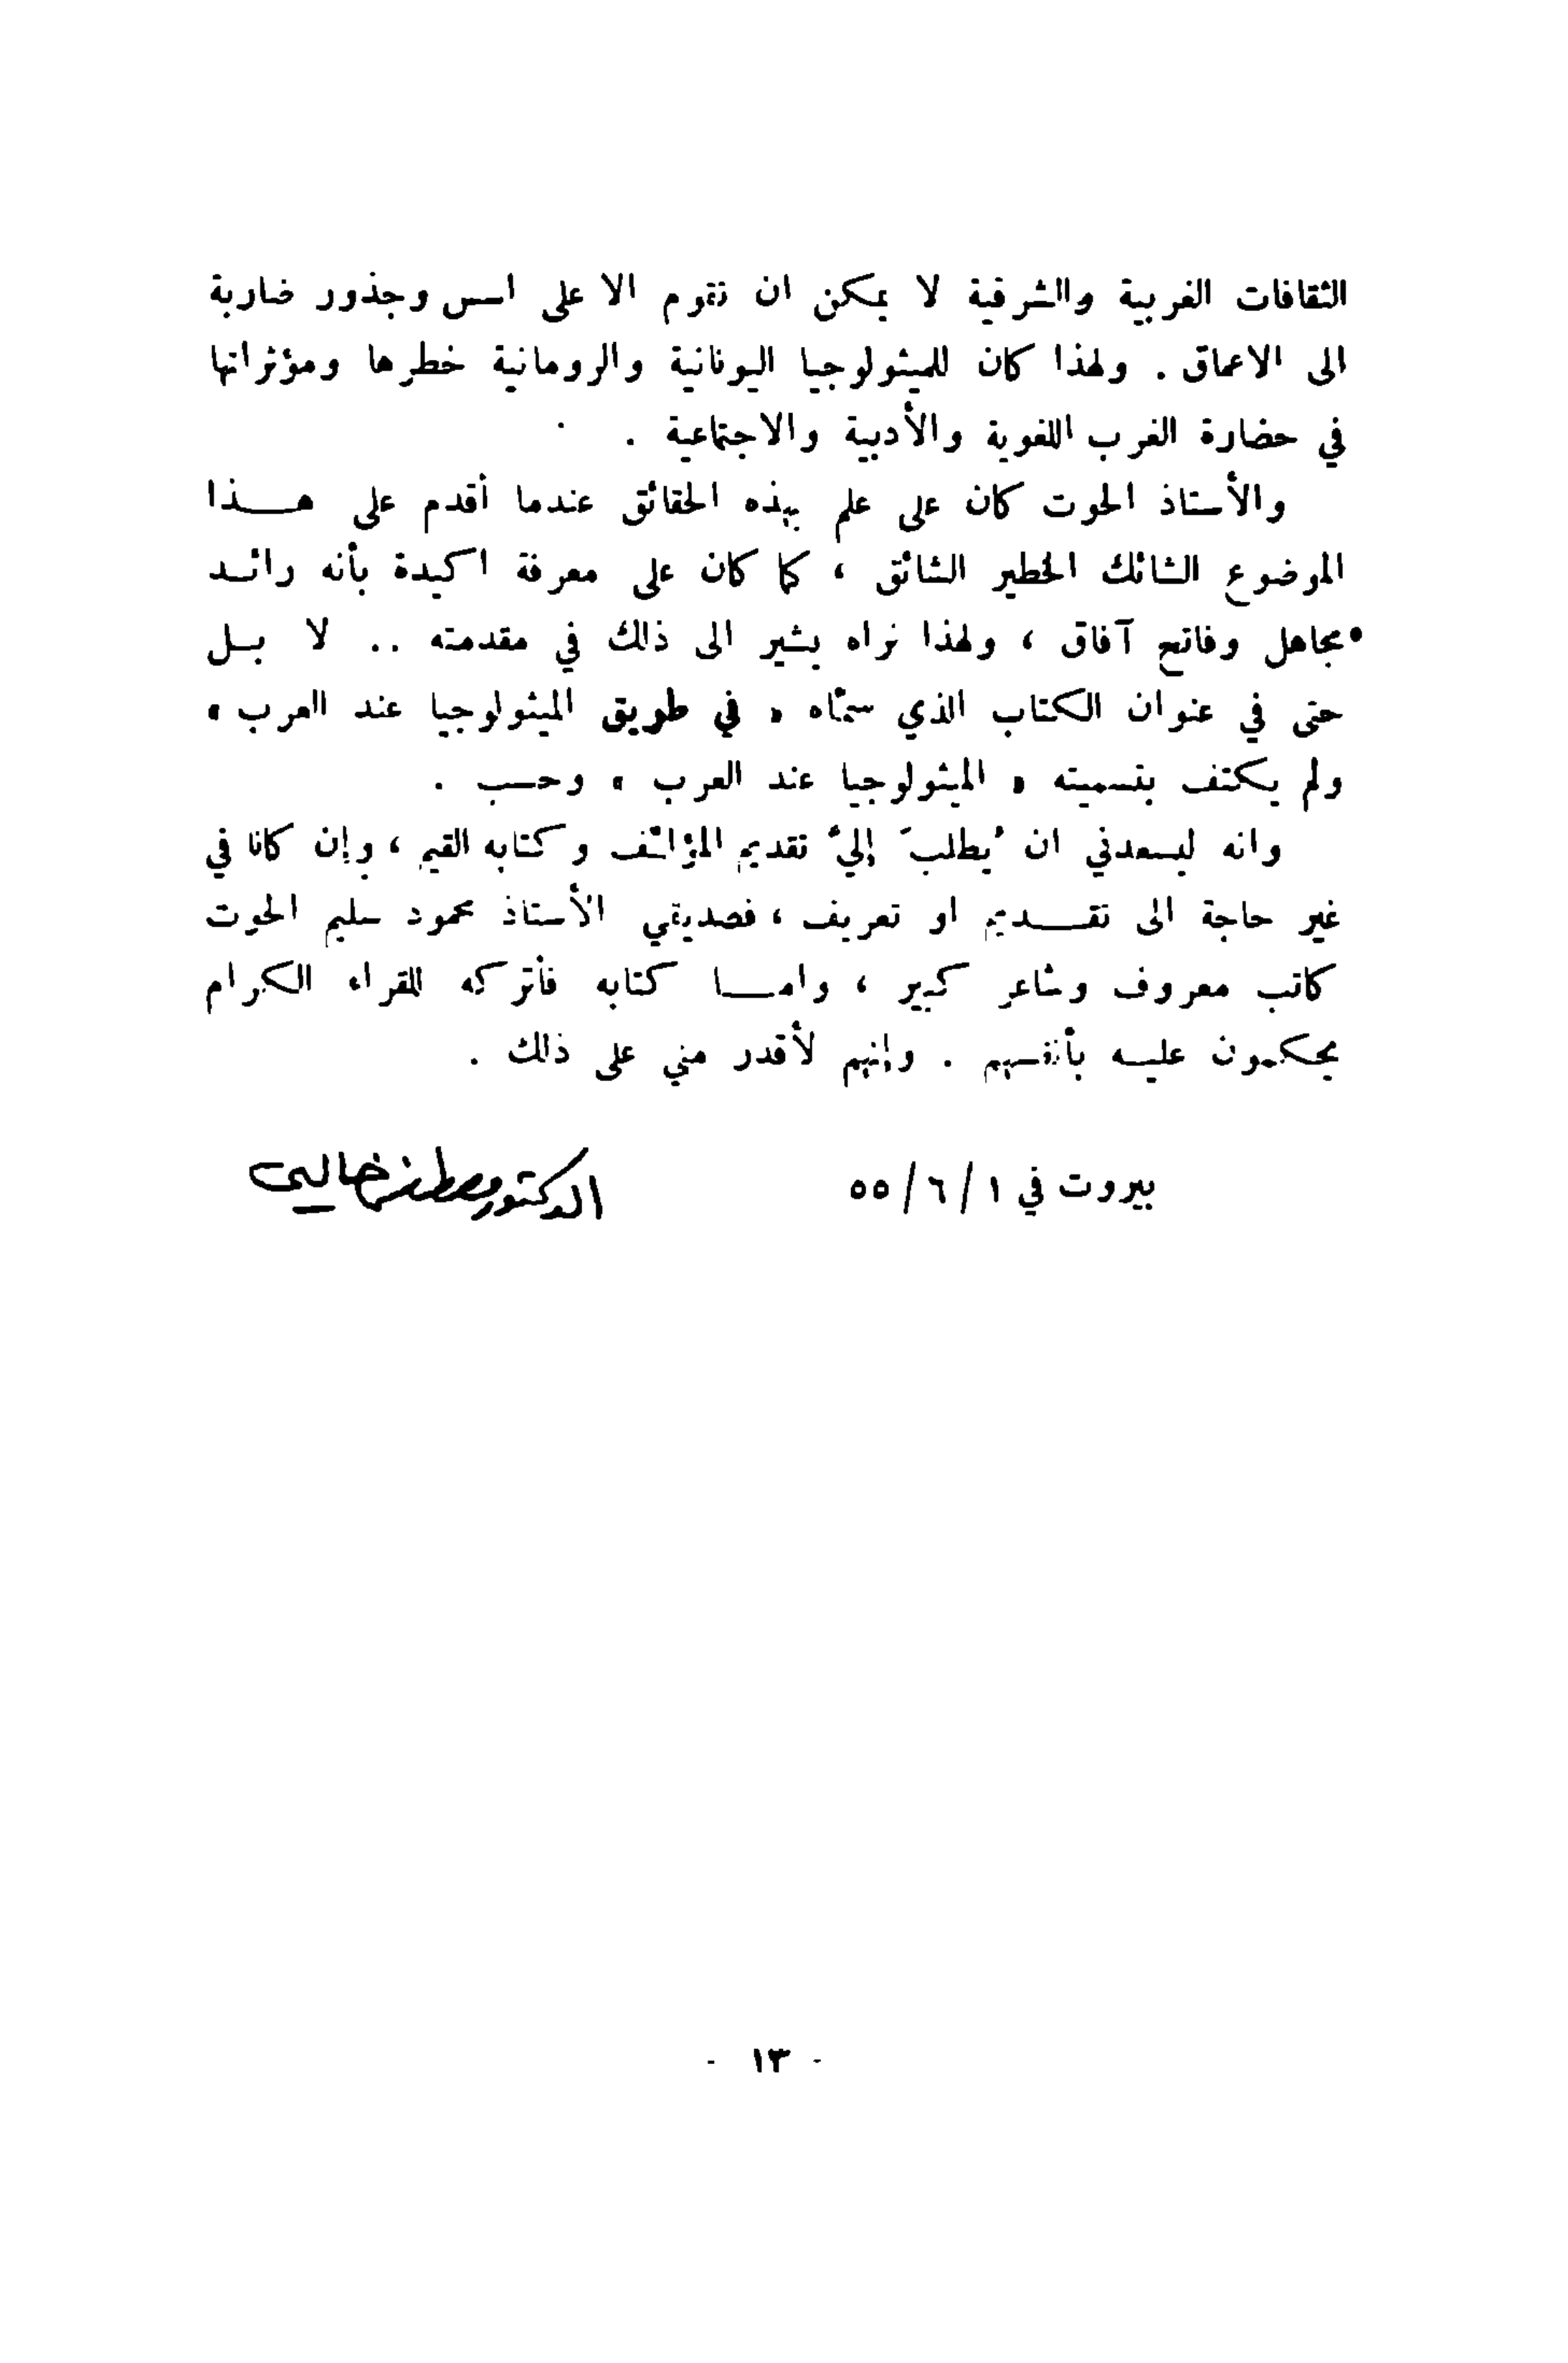 الثقافات الغربية والشرقية لا يمكن ان تقوم الا على اسس وجذور ضاربة
الى الاعماق . ولهذا كان للميثولوجيا اليونانية والرومانية خطرها ومؤثراتها
في حضارة الغرب اللغوية والأدبية والاجتماعية .
والأستاذ الحوت كان على علم بهذه الحقائق عندما أقدم على هـــذا
الموضوع الشائك الخطير الشائق ، كما كان على معرفة اكيدة بأنه رائـد
مجاهل وفاتح آفاق ، ولهذا نراه يشير الى ذلك في مقدمته .. لا بـل
حتى في عنوان الكتاب الذي سمّاه « في طريق الميثولوجيا عند العرب »
ولم يكتف بتسميته « الميثولوجيا عند العرب » وحسب .
وانه ليسعدني ان يُطلبَ إليّ تقديم المؤلّف وكتابه القيم ، وإن كانا في
غير حاجة الى تقـــديم او تعريف ، فصديقي الأستاذ محمود سليم الحوت
كاتب معروف وشاعر كبير ، وامـــا كتابه فأتركه للقراء الكرام
يحكمون عليـه بأنفسهم . وإنهم لأقدر مني على ذلك .
بيروت في ٥٥/٦/١ الدكتور مصطفى خالدي
- ١٣ -